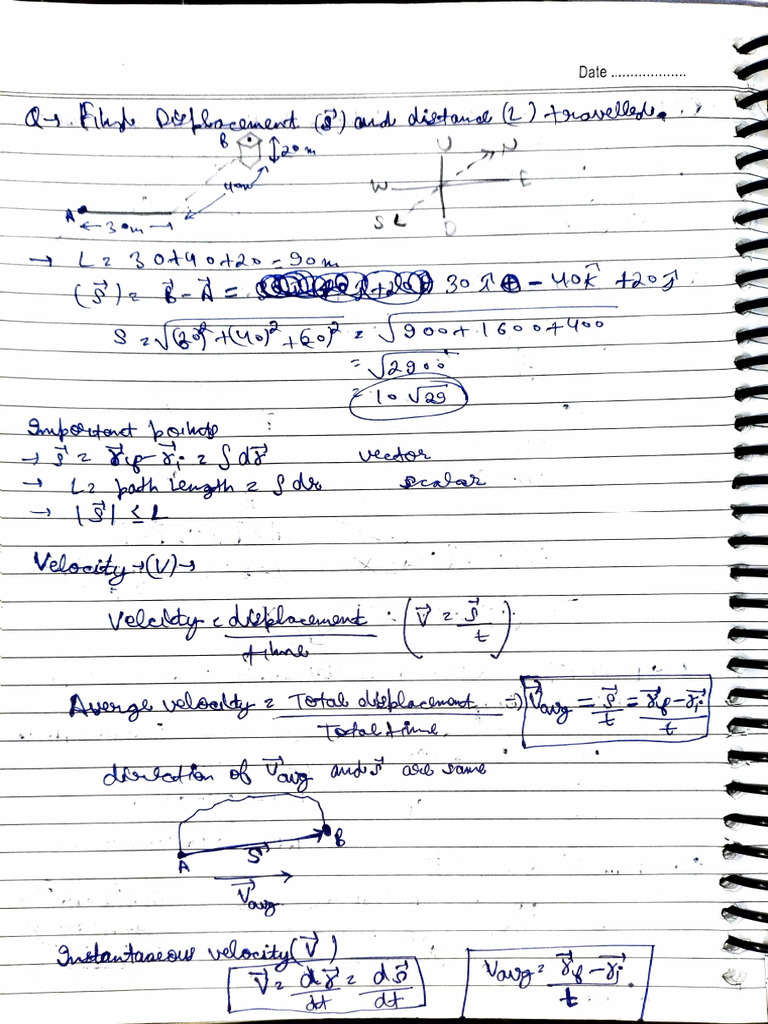 Date ...................
Q→ Find Displacement (S⃗) and distance (L) travelled.
B
20m
40m
A
30m
U
N
W
E
S
D
→ L = 30+40+20 = 90m
(S⃗) = B⃗ - A⃗ = 30 î - 40k̂ + 20ĵ
S = √(30)²+(40)²+(20)² = √900+1600+400
= √2900
= 10√29
Important points :
→ S⃗ = r⃗f - r⃗i = ∫dr⃗ vector
→ L = path length = ∫dr scalar
→ |S⃗| ≤ L
Velocity →(V)→
Velocity = displacement / time : (V⃗ = S⃗ / t)
Averge velocity = Total displacement / Total time ⇒ V⃗avg = S⃗ / t = r⃗f - r⃗i / t
direction of V⃗avg and S⃗ are same
A
S⃗
B
V⃗avg
Instantaneous velocity (V⃗)
V⃗ = dr⃗ / dt = dS⃗ / dt
Vavg = r⃗f - r⃗i / t